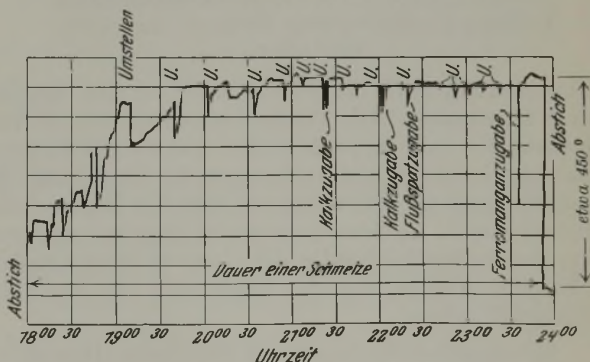 Umstellen
U. U. U. U. U. U. U. U. U. U. U.
Kalkzugabe
Kalkzugabe
Flußspatzugabe
Ferromanganzugabe
Abstich
etwa 450°
Abstich
Dauer einer Schmelze
18⁰⁰ 30 19⁰⁰ 30 20⁰⁰ 30 21⁰⁰ 30 22⁰⁰ 30 23⁰⁰ 30 24⁰⁰
Uhrzeit